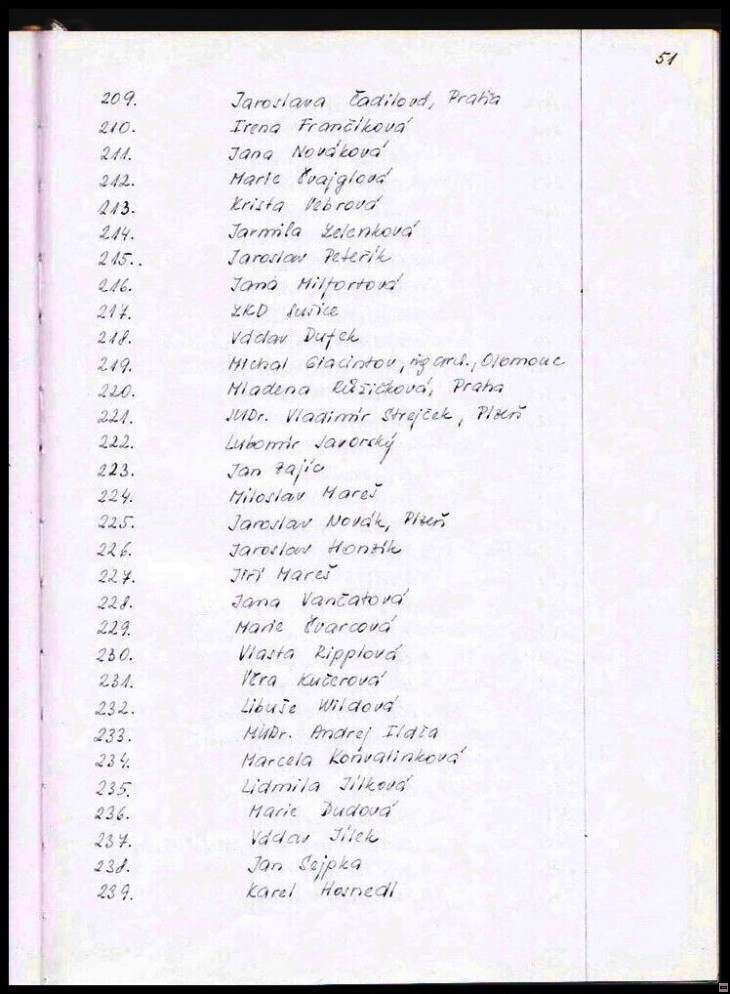 51
209. Jaroslava Čadilová, Praha
210. Irena Frančíková
211. Jana Nováková
212. Marie Švajglová
213. Krista Vebrová
214. Jarmila Zelenková
215.. Jaroslav Peteřík
216. Jana Milfortová
217. ZKD Sušice
218. Václav Dufek
219. Michal Giacintov, ing arch., Olomouc
220. Mladena Růžičková, Praha
221. JUDr. Vladimír Strejček, Plzeň
222. Lubomír Javorský
223. Jan Zajíc
224. Miloslav Mareš
225. Jaroslav Novák, Plzeň
226. Jaroslav Honzík
227. Jiří Mareš
228. Jana Vančatová
229. Marie Švarcová
230. Vlasta Ripplová
231. Věra Kučerová
232. Libuše Wildová
233. MUDr. Andrej
234. Marcela Konvalinková
235. Lidmila Jílková
236. Marie Dudová
237. Václav Jílek
238. Jan Sejpka
239. Karel Hosnedl